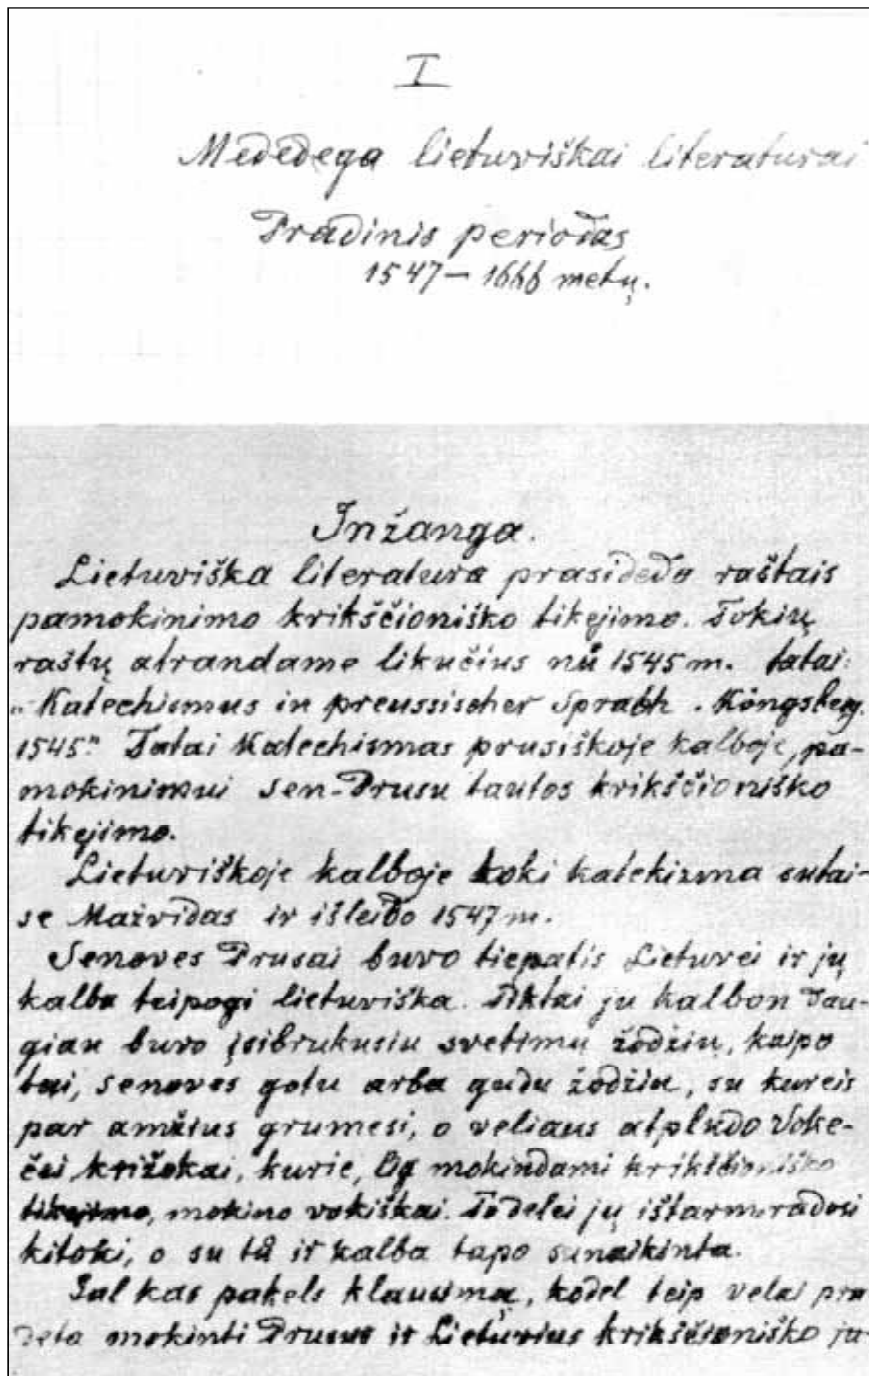 I
Mededega lietuviškai literaturai
Pradinis periodas
1547 – 1666 metų.
Inžanga.
Lietuviška literatura prasideda raštais
pamokinimo krikščioniško tikejimo. Tokių
raštų atrandame likučius nů 1545 m. tatai:
„Katechismus in preussischer Sprach. Köngsberg.
1545" Tatai Katechismas prusiškoje kalboje, pa-
mokinimui sen-Prusu tautos krikščioniško
tikejimo.
Lietuviškoje kalboje toki katekizma sutai-
se Mažvidas ir išleido 1547 m.
Senoves Prusai buvo tiepatis Lietuvei ir jų
kalba teipogi lietuviška. Tiktai ju kalbon dau-
giau buvo įsibrukusiu svetimų žodžių, kaipo
tai, senoves gotu arba gudu žodžiu, su kureis
par amžius grumesi, o veliaus atpludo Voke-
čei križokai, kurie, mokindami krikščioniško
tikejimo, mokino vokiškai. Todelei jų ištarme radosi
kitoki, o su tů ir kalba tapo sunaikinta.
Gal kas pakels klausimą, kodel teip velai pra
deta mokinti Prusus ir Lietuvius krikščioniško